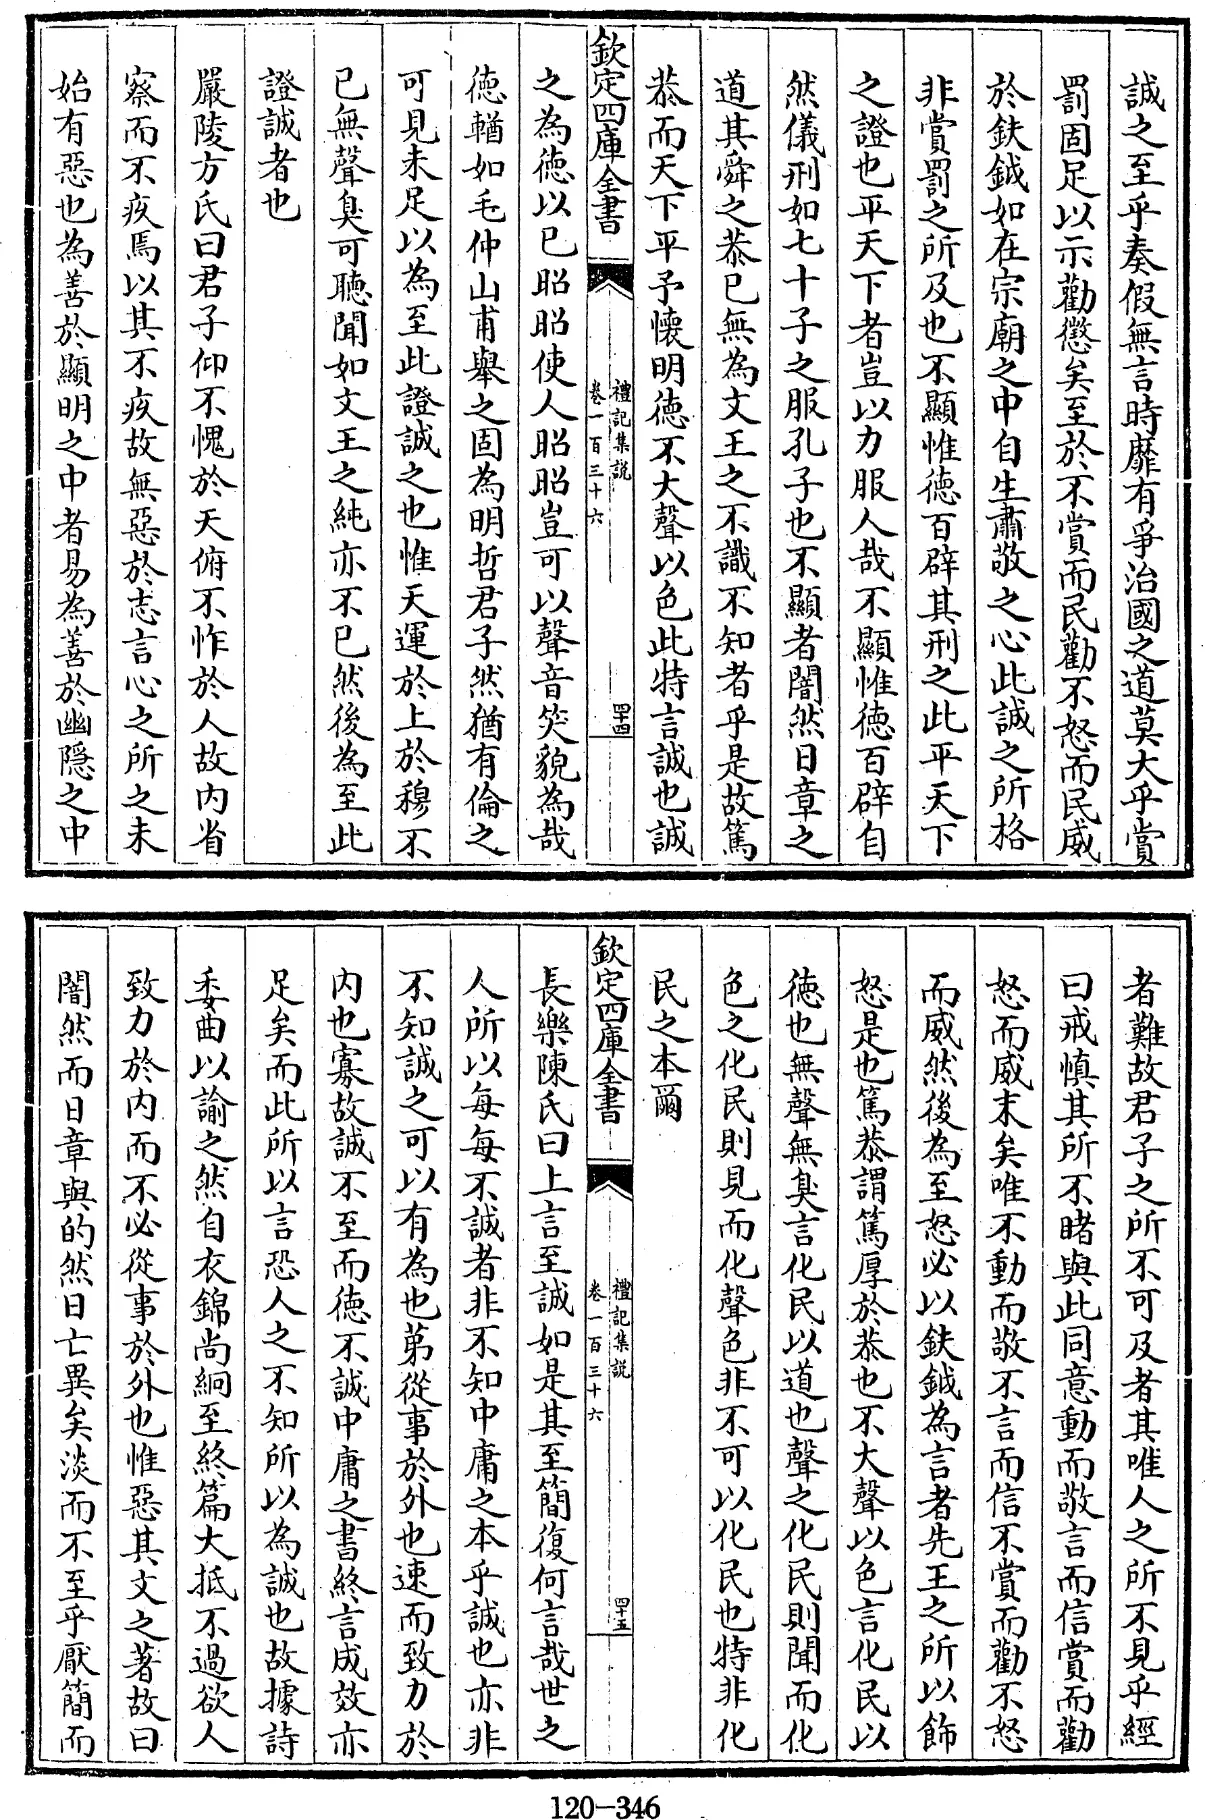 誠之至乎奏假無言時靡有爭治國之道莫大乎賞
罰固足以示勸懲矣至於不賞而民勸不怒而民威
於鈇鉞如在宗廟之中自生肅敬之心此誠之所格
非賞罰之所及也不顯惟德百辟其刑之此平天下
之證也平天下者豈以力服人哉不顯惟德百辟自
然儀刑如七十子之服孔子也不顯者闇然日章之
道其舜之恭已無為文王之不識不知者乎是故篤
恭而天下平予懷明德不大聲以色此特言誠也誠
欽定四庫全書
禮記集說
卷一百三十六
四十四
之為德以已昭昭使人昭昭豈可以聲音笑貌為哉
德輶如毛仲山甫舉之固為明哲君子然猶有倫之
可見未足以為至此證誠之也惟天運於上於穆不
已無聲臭可聽聞如文王之純亦不已然後為至此
證誠者也
嚴陵方氏曰君子仰不愧於天俯不怍於人故内省
察而不疚焉以其不疚故無惡於志言心之所之未
始有惡也為善於顯明之中者易為善於幽隱之中
者難故君子之所不可及者其唯人之所不見乎經
曰戒慎其所不睹與此同意動而敬言而信賞而勸
怒而威末矣唯不動而敬不言而信不賞而勸不怒
而威然後為至怒必以鈇鉞為言者先王之所以飾
怒是也篤恭謂篤厚於恭也不大聲以色言化民以
德也無聲無臭言化民以道也聲之化民則聞而化
色之化民則見而化聲色非不可以化民也特非化
民之本爾
欽定四庫全書
禮記集說
卷一百三十六
四十五
長樂陳氏曰上言至誠如是其至簡復何言哉世之
人所以每每不誠者非不知中庸之本乎誠也亦非
不知誠之可以有為也第從事於外也速而致力於
内也寡故誠不至而德不誠中庸之書終言成效亦
足矣而此所以言恐人之不知所以為誠也故據詩
委曲以諭之然自衣錦尚絅至終篇大抵不過欲人
致力於内而不必從事於外也惟惡其文之著故曰
闇然而日章與的然日亡異矣淡而不至乎厭簡而
120-346